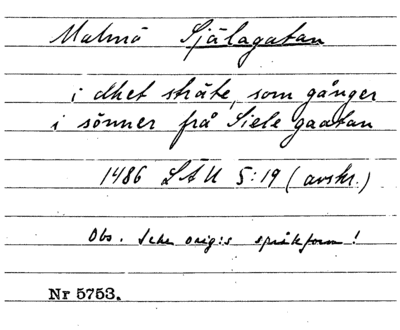 Malmö Själagatan
i dhet sträte, som gånger
i sönner frå Siele gaatan
1486 LÄU 5:19 (avskr.)
Obs. Icke orig:s språkform!
Nr 5753.